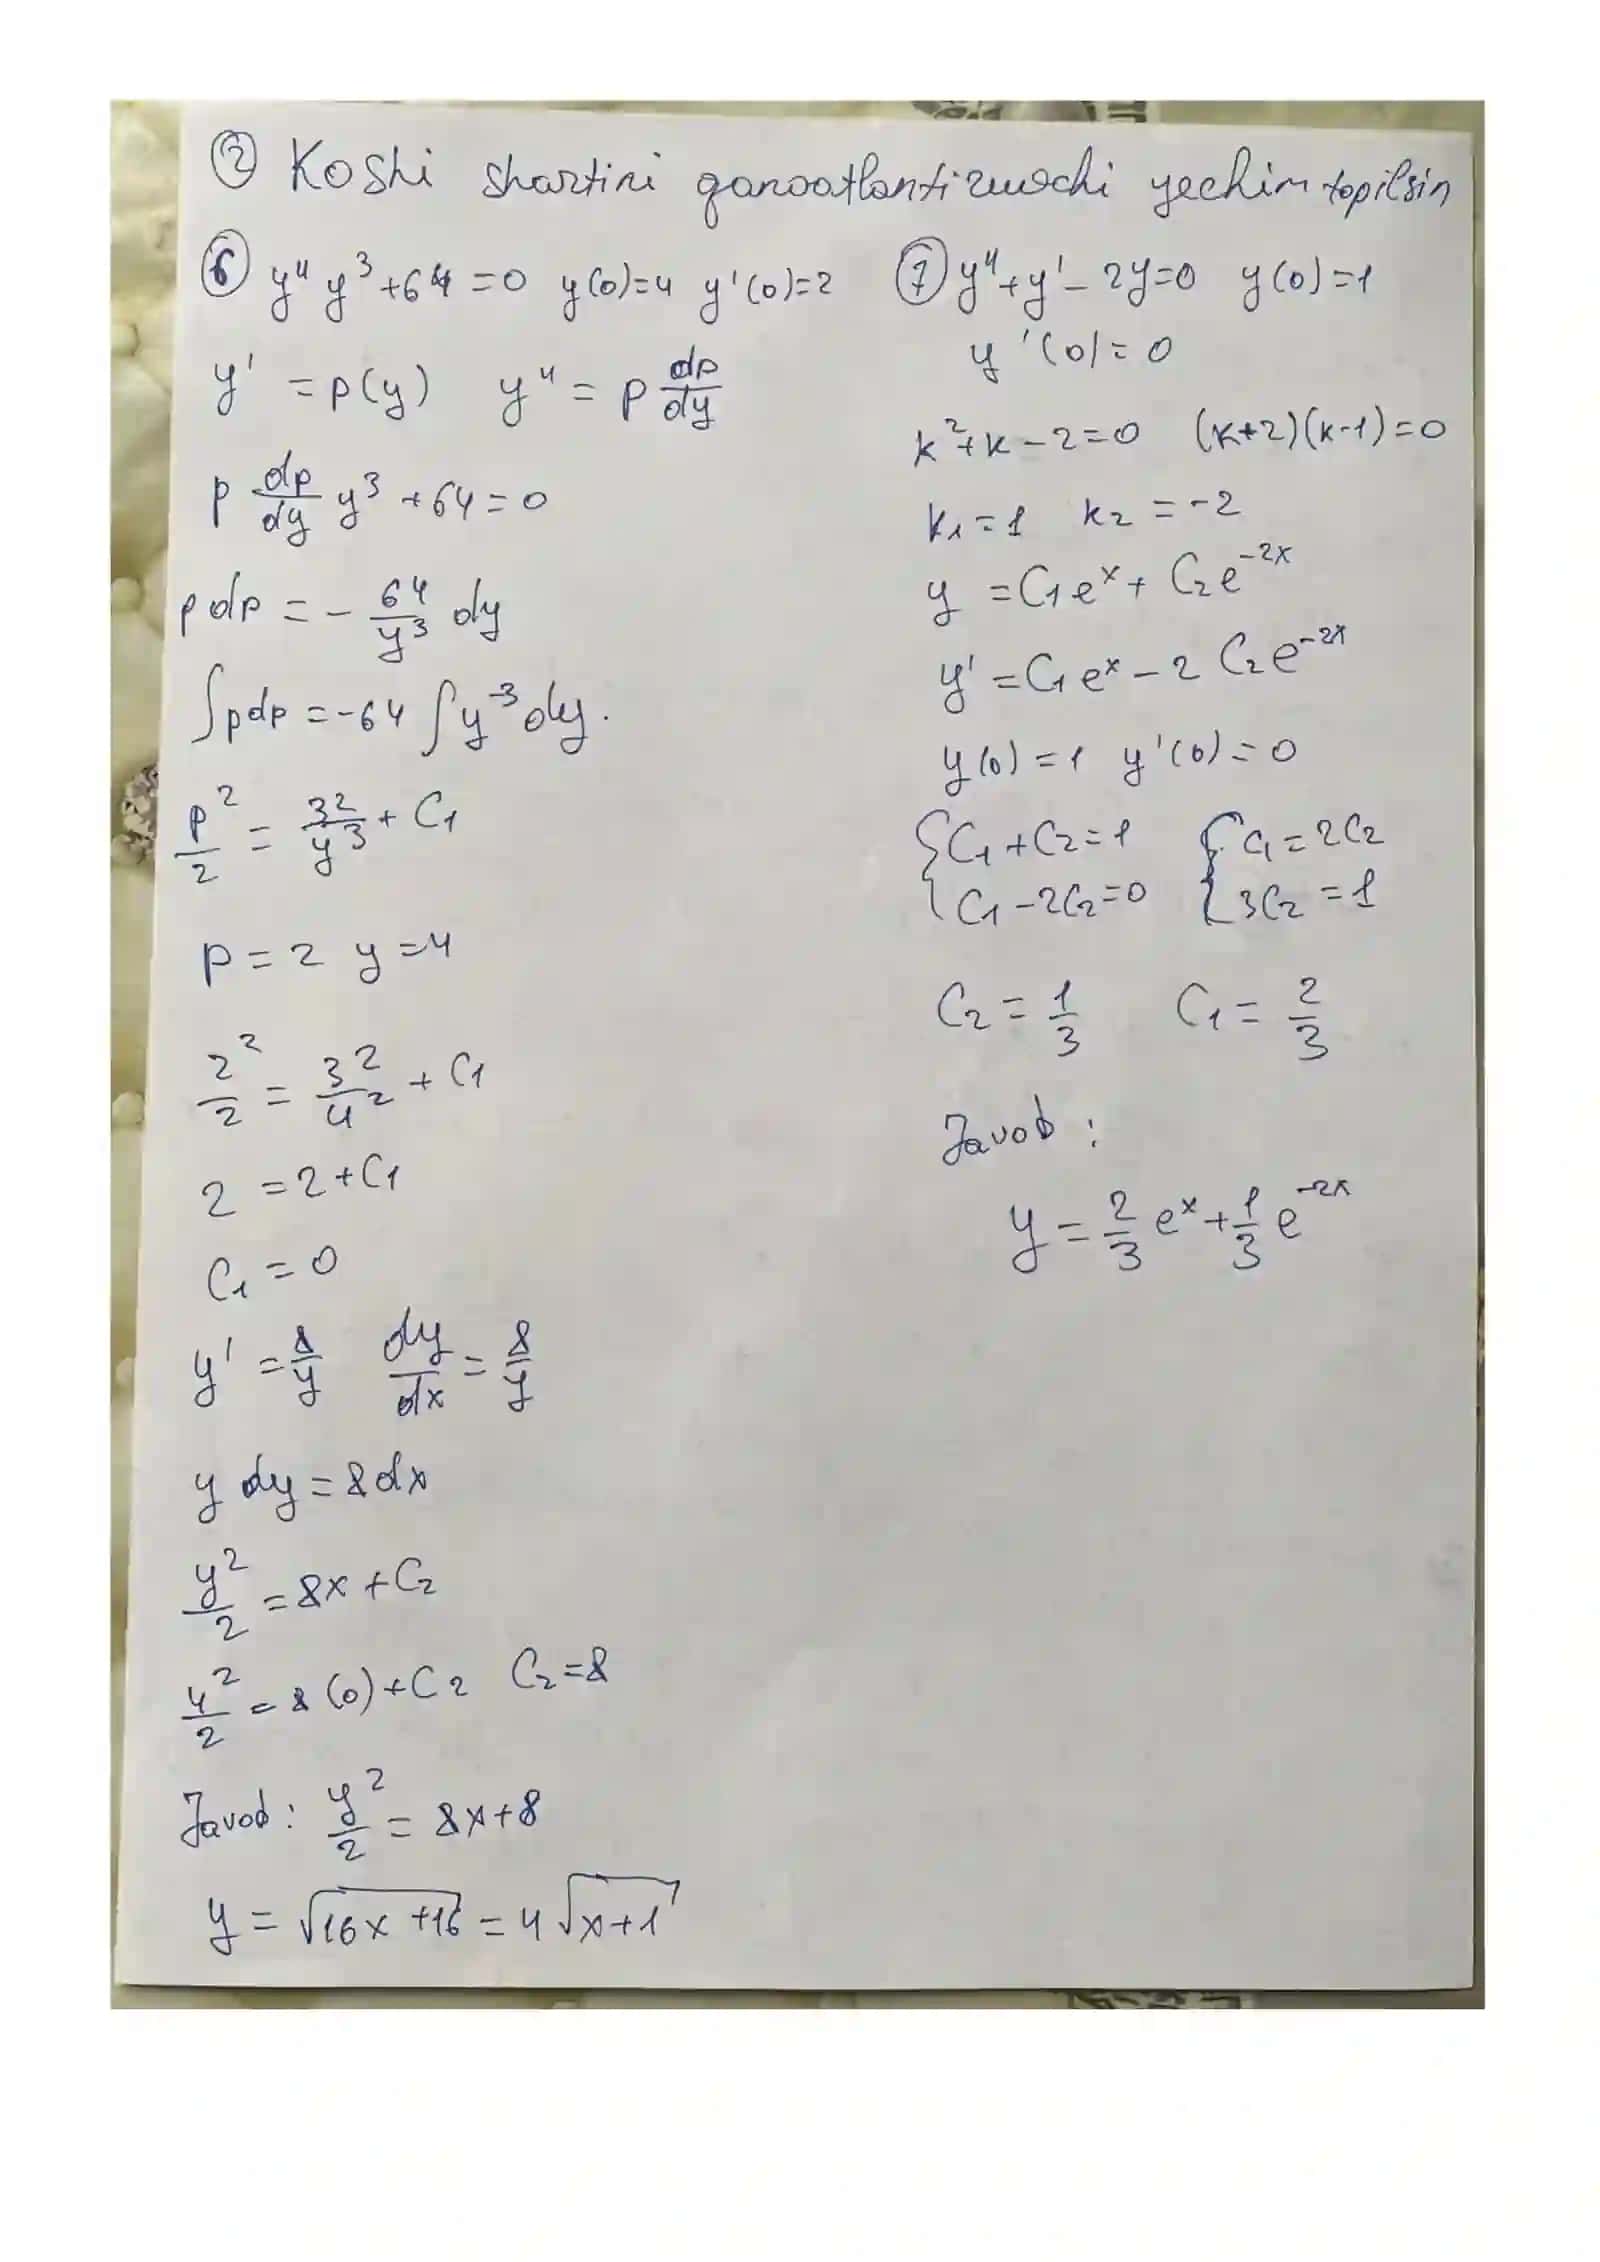 ② Koshi shartini qanoatlantiruvchi yechim topilsin
⑥ y'' y³ + 64 = 0 y(0)=4 y'(0)=2
y' = p(y) y'' = p dp/dy
p dp/dy y³ + 64 = 0
p dp = - 64/y³ dy
∫pdp = -64 ∫y⁻³dy.
p²/2 = 32/y³ + C₁
p = 2 y = 4
2²/2 = 32/4² + C₁
2 = 2 + C₁
C₁ = 0
y' = 8/y dy/dx = 8/y
y dy = 8dx
y²/2 = 8x + C₂
4²/2 = 8(0) + C₂ C₂ = 8
Javob: y²/2 = 8x+8
y = √(16x+16) = 4√(x+1)
⑦ y'' + y' - 2y = 0 y(0)=1
y'(0) = 0
k² + k - 2 = 0 (k+2)(k-1) = 0
k₁ = 1 k₂ = -2
y = C₁eˣ + C₂e⁻²ˣ
y' = C₁eˣ - 2 C₂e⁻²ˣ
y(0) = 1 y'(0) = 0
{C₁ + C₂ = 1 {C₁ = 2C₂
{C₁ - 2C₂ = 0 {3C₂ = 1
C₂ = 1/3 C₁ = 2/3
Javob:
y = 2/3 eˣ + 1/3 e⁻²ˣ